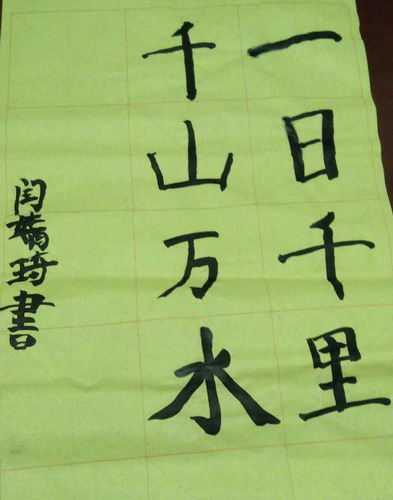 一日千里
千山万水
闫嫣琦書